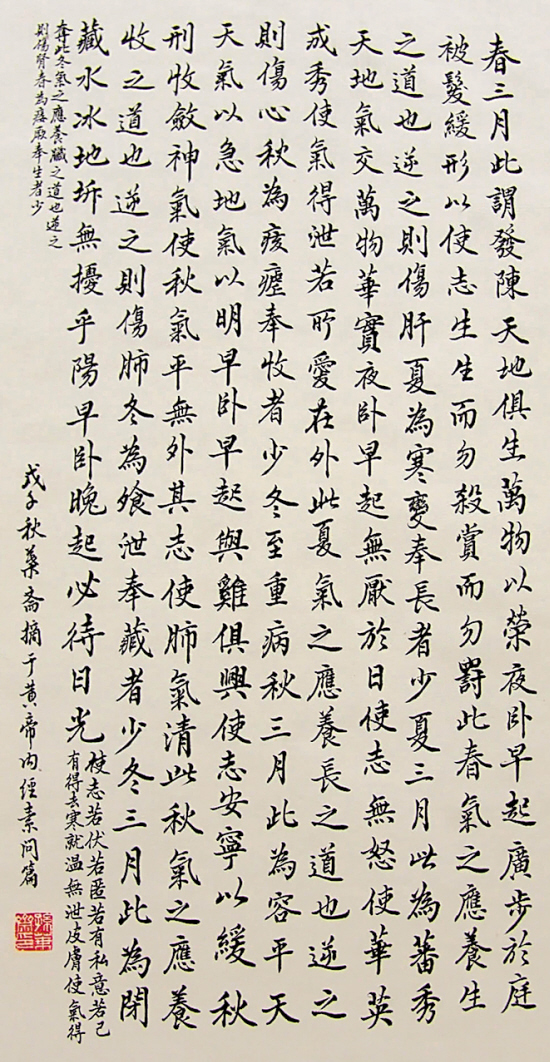 春三月此謂發陳天地俱生萬物以榮夜卧早起廣步於庭
被髮緩形以使志生生而勿殺賞而勿罸此春氣之應養生
之道也逆之則傷肝夏為寒變奉長者少夏三月此為蕃秀
天地氣交萬物華實夜卧早起無厭於日使志無怒使華英
成秀使氣得泄若所愛在外此夏氣之應養長之道也逆之
則傷心秋為痎瘧奉收者少冬至重病秋三月此為容平天
天氣以急地氣以明早卧早起與雞俱興使志安寧以緩秋
刑收斂神氣使秋氣平無外其志使肺氣清此秋氣之應養
收之道也逆之則傷肺冬為飧泄奉藏者少冬三月此為閉
藏水冰地坼無擾乎陽早卧晚起必待日光
使志若伏若匿若有私意若已
有得去寒就温無泄皮膚使氣得
奪此冬氣之應養藏之道也逆之
則傷腎春為痿厥奉生者少
戊子秋藥斎摘于黄帝内經素问篇